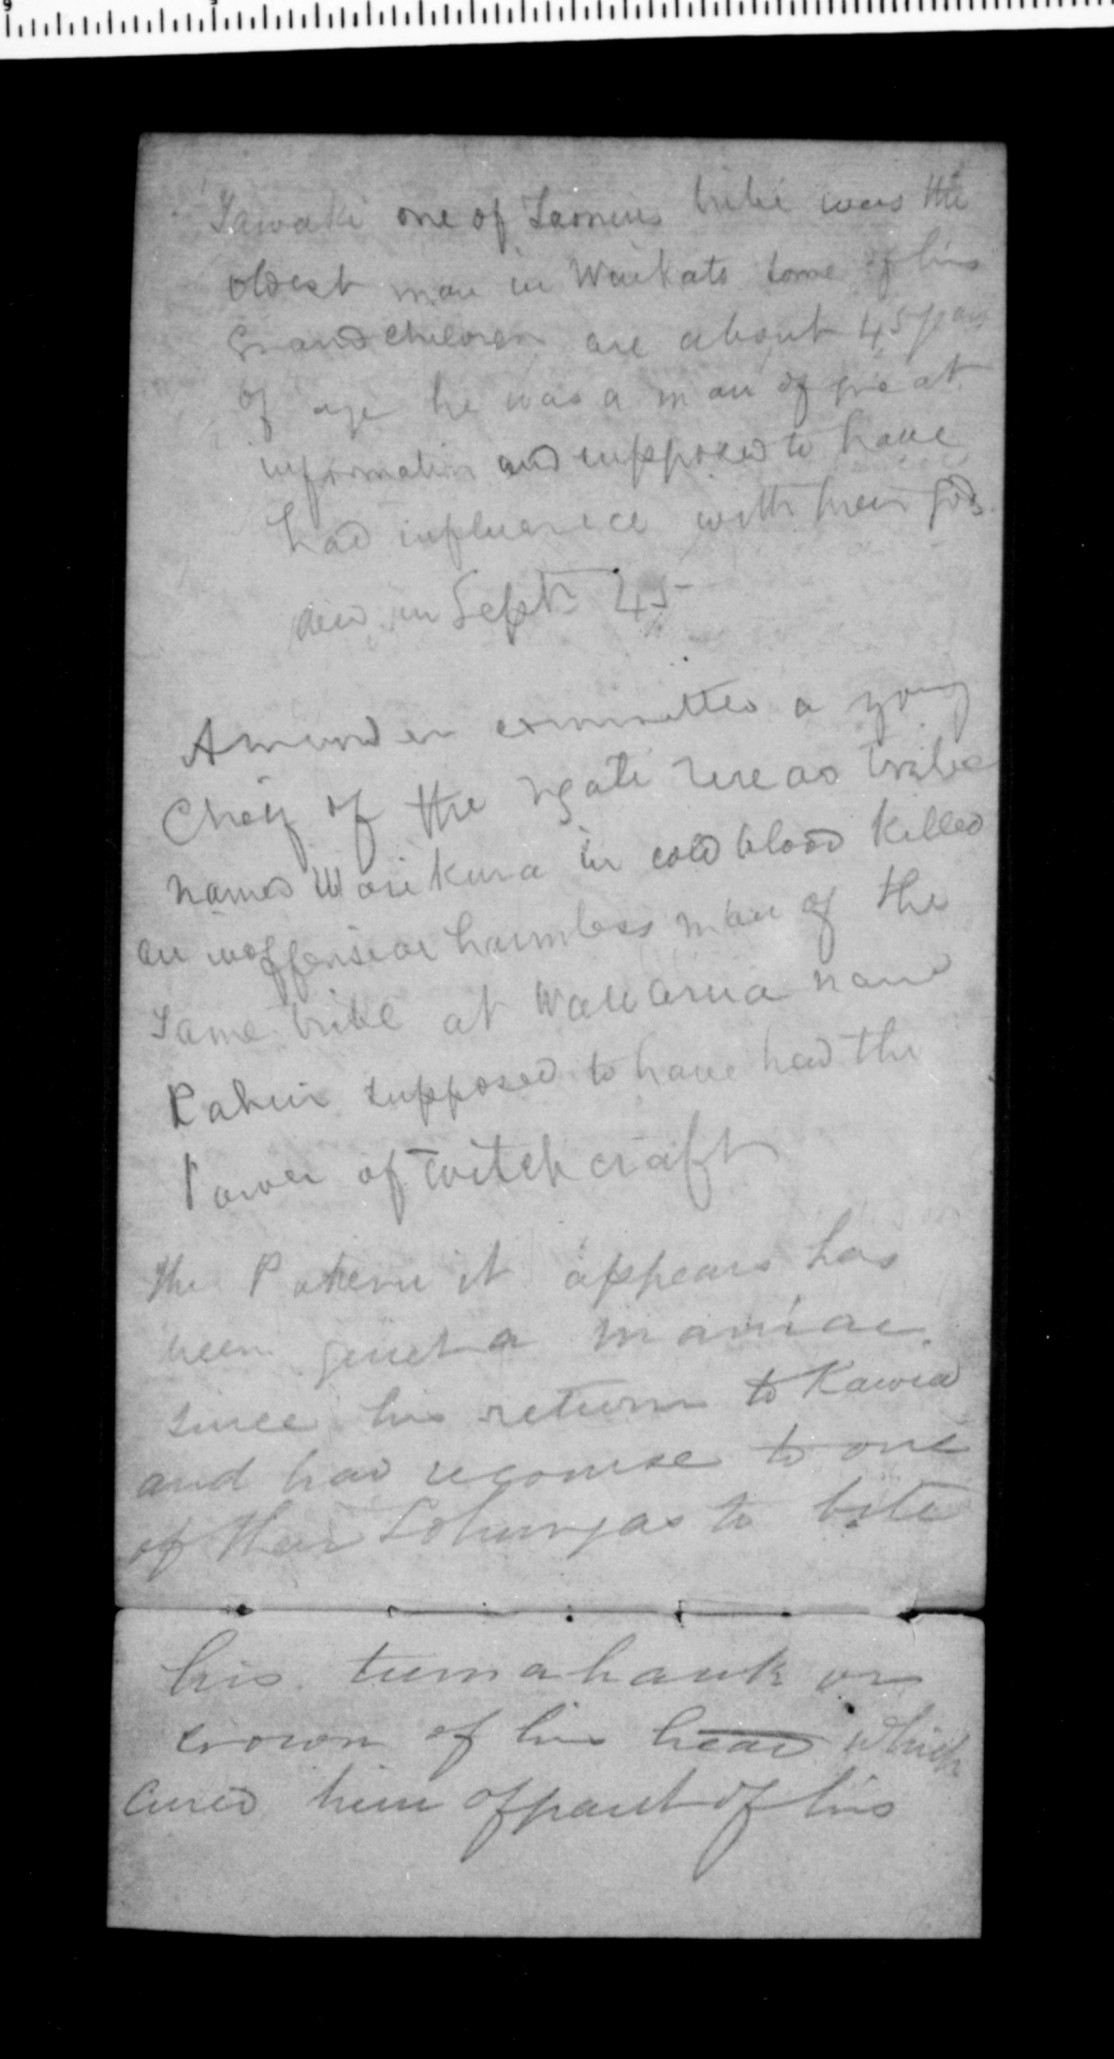 Tawaki one of Taonui's tribe was the
oldest man in Waikato some of his
Grandchildren are about 45 years
of age he was a man of great
information and supposed to have
had influence with their gods.
died in Sept 45
A murder committed a young
Chief of the ngati reread tribe
named Warikura in cold blood killed
an inoffensive harmless man of the
same tribe at named
supposed to have had the
Power of Witchcraft
the it appears has
been quiet a maniac
since his return to Kawia
and had recourse to one
of their Tohungas to bite
his tumahauk or
crown of his head which
cured him of part of his